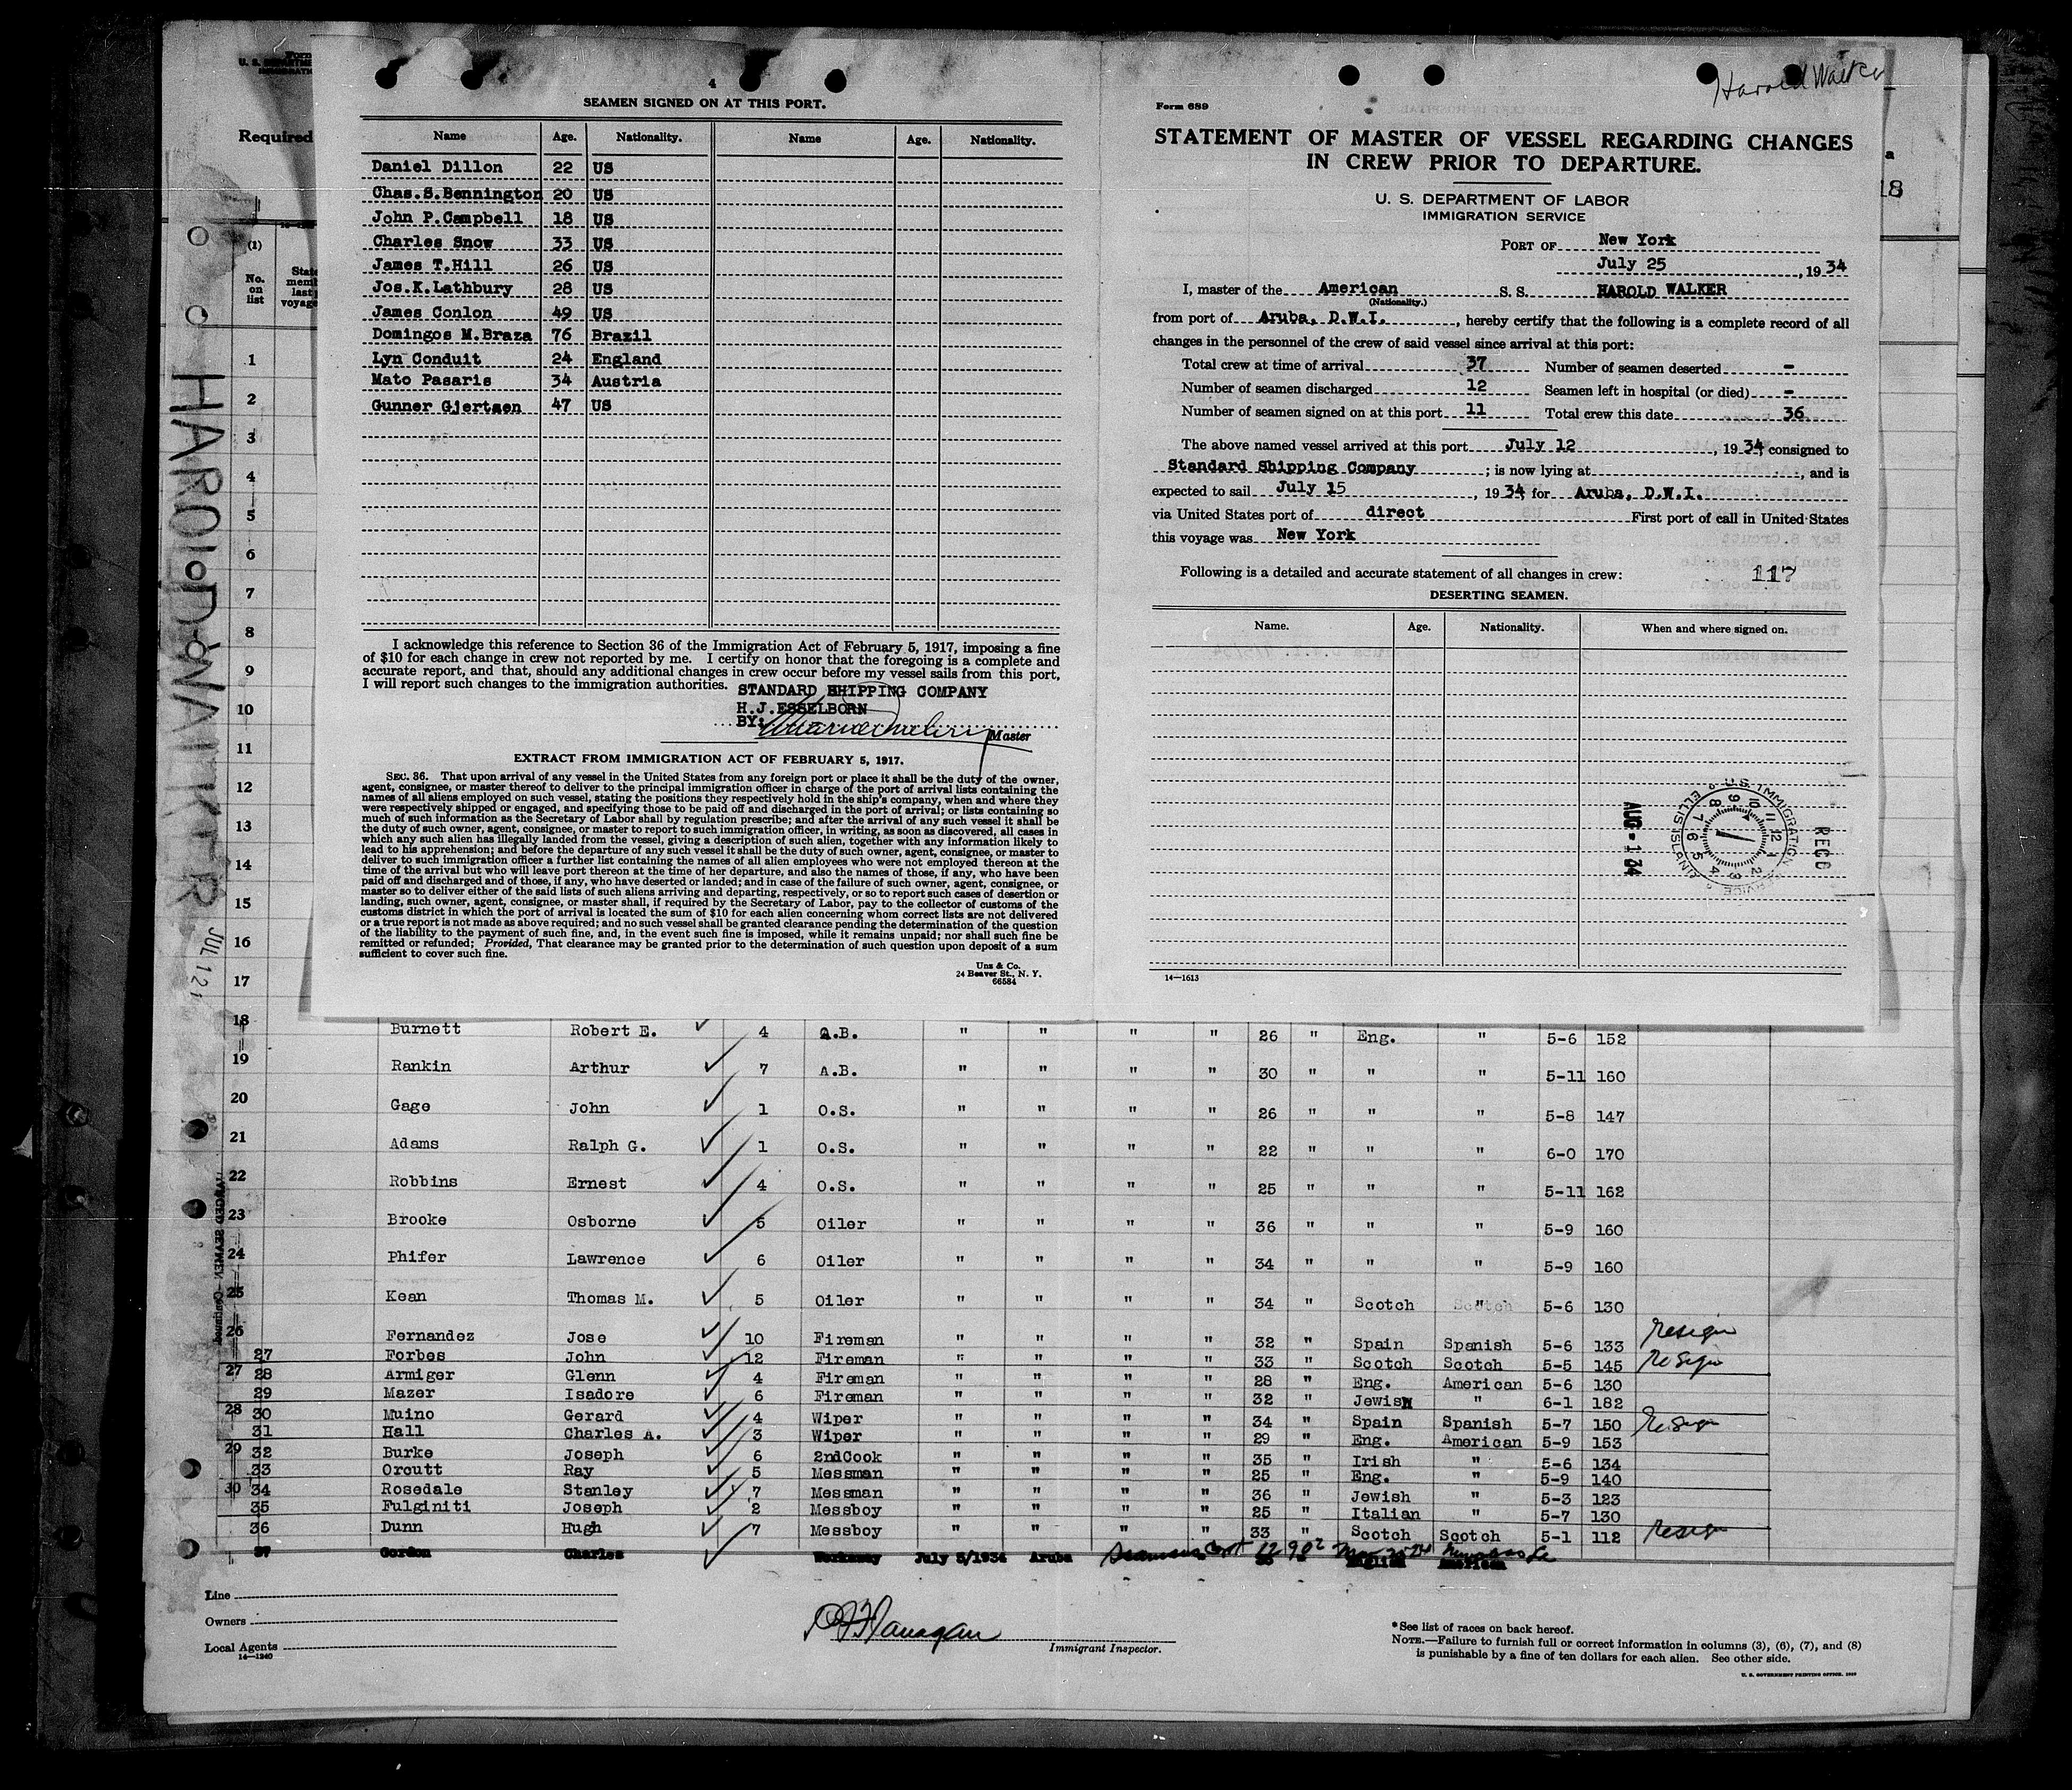 4
SEAMEN SIGNED ON AT THIS PORT.
Name Age. Nationality. Name Age. Nationality.
Daniel Dillon 22 US
Chas.S.Bennington 20 US
John P.Campbell 18 US
Charles Snow 33 US
James T.Hill 26 US
Jos.K.Lathbury 28 US
James Conlon 49 US
Domingos M.Braza 76 Brazil
Lyn Conduit 24 England
Mato Pasaris 34 Austria
Gunner Gjertsen 47 US
I acknowledge this reference to Section 36 of the Immigration Act of February 5, 1917, imposing a fine
of $10 for each change in crew not reported by me. I certify on honor that the foregoing is a complete and
accurate report, and that, should any additional changes in crew occur before my vessel sails from this port,
I will report such changes to the immigration authorities.
STANDARD SHIPPING COMPANY
H.J.ESSELBORN
BY:
Master
EXTRACT FROM IMMIGRATION ACT OF FEBRUARY 5, 1917.
SEC. 36. That upon arrival of any vessel in the United States from any foreign port or place it shall be the duty of the owner,
agent, consignee, or master thereof to deliver to the principal immigration officer in charge of the port of arrival lists containing the
names of all aliens employed on such vessel, stating the positions they respectively hold in the ship's company, when and where they
were respectively shipped or engaged, and specifying those to be paid off and discharged in the port of arrival; or lists containing so
much of such information as the Secretary of Labor shall by regulation prescribe; and after the arrival of any such vessel it shall be
the duty of such owner, agent, consignee, or master to report to such immigration officer, in writing, as soon as discovered, all cases in
which any such alien has illegally landed from the vessel, giving a description of such alien, together with any information likely to
lead to his apprehension; and before the departure of any such vessel it shall be the duty of such owner, agent, consignee, or master to
deliver to such immigration officer a further list containing the names of all alien employees who were not employed thereon at the
time of the arrival but who will leave port thereon at the time of her departure, and also the names of those, if any, who have been
paid off and discharged and of those, if any, who have deserted or landed; and in case of the failure of such owner, agent, consignee, or
master so to deliver either of the said lists of such aliens arriving and departing, respectively, or so to report such cases of desertion or
landing, such owner, agent, consignee, or master shall, if required by the Secretary of Labor, pay to the collector of customs of the
customs district in which the port of arrival is located the sum of $10 for each alien concerning whom correct lists are not delivered
or a true report is not made as above required; and no such vessel shall be granted clearance pending the determination of the question
of the liability to the payment of such fine, and, in the event such fine is imposed, while it remains unpaid; nor shall such fine be
remitted or refunded; Provided, That clearance may be granted prior to the determination of such question upon deposit of a sum
sufficient to cover such fine.
Unz & Co.
24 Beaver St., N. Y.
66584
Harold Walker
Form 689
STATEMENT OF MASTER OF VESSEL REGARDING CHANGES
IN CREW PRIOR TO DEPARTURE.
U. S. DEPARTMENT OF LABOR
IMMIGRATION SERVICE
PORT OF New York
July 25, 1934
I, master of the American S. S. HAROLD WALKER
(Nationality.)
from port of Aruba, D.W.I., hereby certify that the following is a complete record of all
changes in the personnel of the crew of said vessel since arrival at this port:
Total crew at time of arrival 37 Number of seamen deserted -
Number of seamen discharged 12 Seamen left in hospital (or died) -
Number of seamen signed on at this port 11 Total crew this date 36
The above named vessel arrived at this port July 12, 1934 consigned to
Standard Shipping Company; is now lying at, and is
expected to sail July 15, 1934 for Aruba, D.W.I.
via United States port of direct First port of call in United States
this voyage was New York
Following is a detailed and accurate statement of all changes in crew: 117
DESERTING SEAMEN.
Name. Age. Nationality. When and where signed on.
U.S. IMMIGRATION SERVICE ELLIS ISLAND
RECD
AUG-1 34
14—1613
Required
18
(1)
No. on list
HAROLD WALKER
JUL 12
1
2
3
4
5
6
7
8
9
10
11
12
13
14
15
16
17
18 Burnett Robert E. 4 A.B. " " " " 26 " Eng. " 5-6 152
19 Rankin Arthur 7 A.B. " " " " 30 " " " 5-11 160
20 Gage John 1 O.S. " " " " 26 " " " 5-8 147
21 Adams Ralph G. 1 O.S. " " " " 22 " " " 6-0 170
22 Robbins Ernest 4 O.S. " " " " 25 " " " 5-11 162
23 Brooke Osborne 5 Oiler " " " " 36 " " " 5-9 160
24 Phifer Lawrence 6 Oiler " " " " 34 " " " 5-9 160
25 Kean Thomas M. 5 Oiler " " " " 34 " Scotch " 5-6 130
26 Fernandez Jose 10 Fireman " " " " 32 " Spain Spanish 5-6 133 Resign
27 Forbes John 12 Fireman " " " " 33 " Scotch Scotch 5-5 145 Resign
27 28 Armiger Glenn 4 Fireman " " " " 28 " Eng. American 5-6 130
29 Mazer Isadore 6 Fireman " " " " 32 " Jewish " 6-1 182
28 30 Muino Gerard 4 Wiper " " " " 34 " Spain Spanish 5-7 150 Resign
31 Hall Charles A. 3 Wiper " " " " 29 " Eng. American 5-9 153
29 32 Burke Joseph 6 2ndCook " " " " 35 " Irish " 5-6 134
33 Orcutt Ray 5 Messman " " " " 25 " Eng. " 5-9 140
30 34 Rosedale Stanley 7 Messman " " " " 36 " Jewish " 5-3 123
35 Fulginiti Joseph 2 Messboy " " " " 25 " Italian " 5-7 130
36 Dunn Hugh 7 Messboy " " " " 33 " Scotch Scotch 5-1 112 Resign
37 Gordon Charles Workaway July 5/1934 Aruba English American
Line
Owners
Local Agents
14—1240
Immigrant Inspector.
*See list of races on back hereof.
NOTE.—Failure to furnish full or correct information in columns (3), (6), (7), and (8)
is punishable by a fine of ten dollars for each alien. See other side.